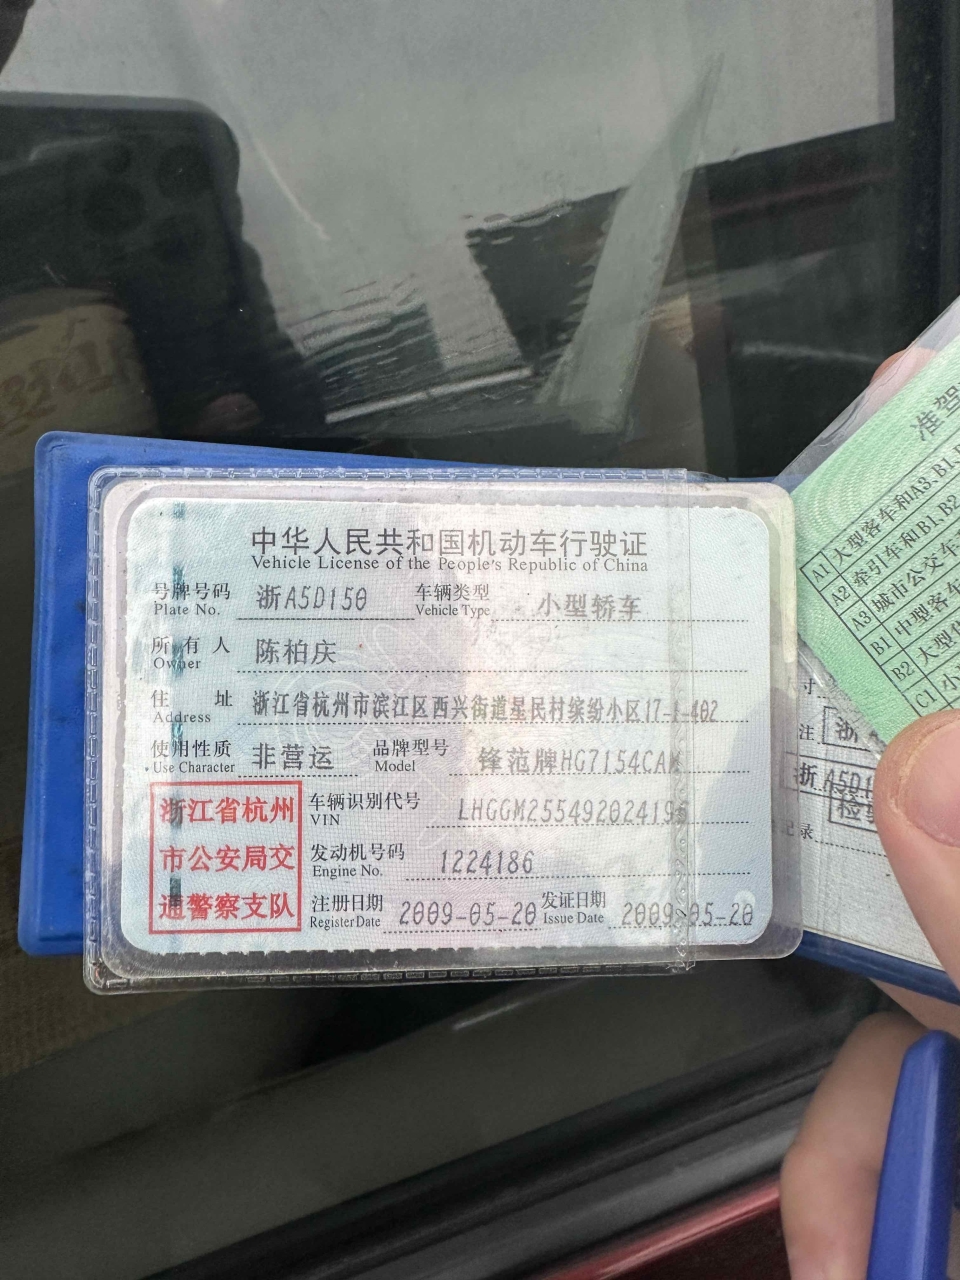 中华人民共和国机动车行驶证
Vehicle License of the People's Republic of China
号牌号码 浙A5D150 车辆类型 小型轿车
Plate No. Vehicle Type
所有人 陈柏庆
Owner
住址 浙江省杭州市滨江区西兴街道星民村缤纷小区17-1-402
Address
使用性质 非营运 品牌型号 锋范牌HG7154CAM
Use Character Model
浙江省杭州
市公安局交
通警察支队
车辆识别代号 LHGGM255492024196
VIN
发动机号码 1224186
Engine No.
注册日期 2009-05-20 发证日期 2009-05-20
Register Date Issue Date
准驾
A1 大型客车和A3、B1、B
A2 牵引车和B1、B2
A3 城市公交车
B1 中型客车
B2 大型
C1 小
寸
注 浙
浙A5D1
记录 检